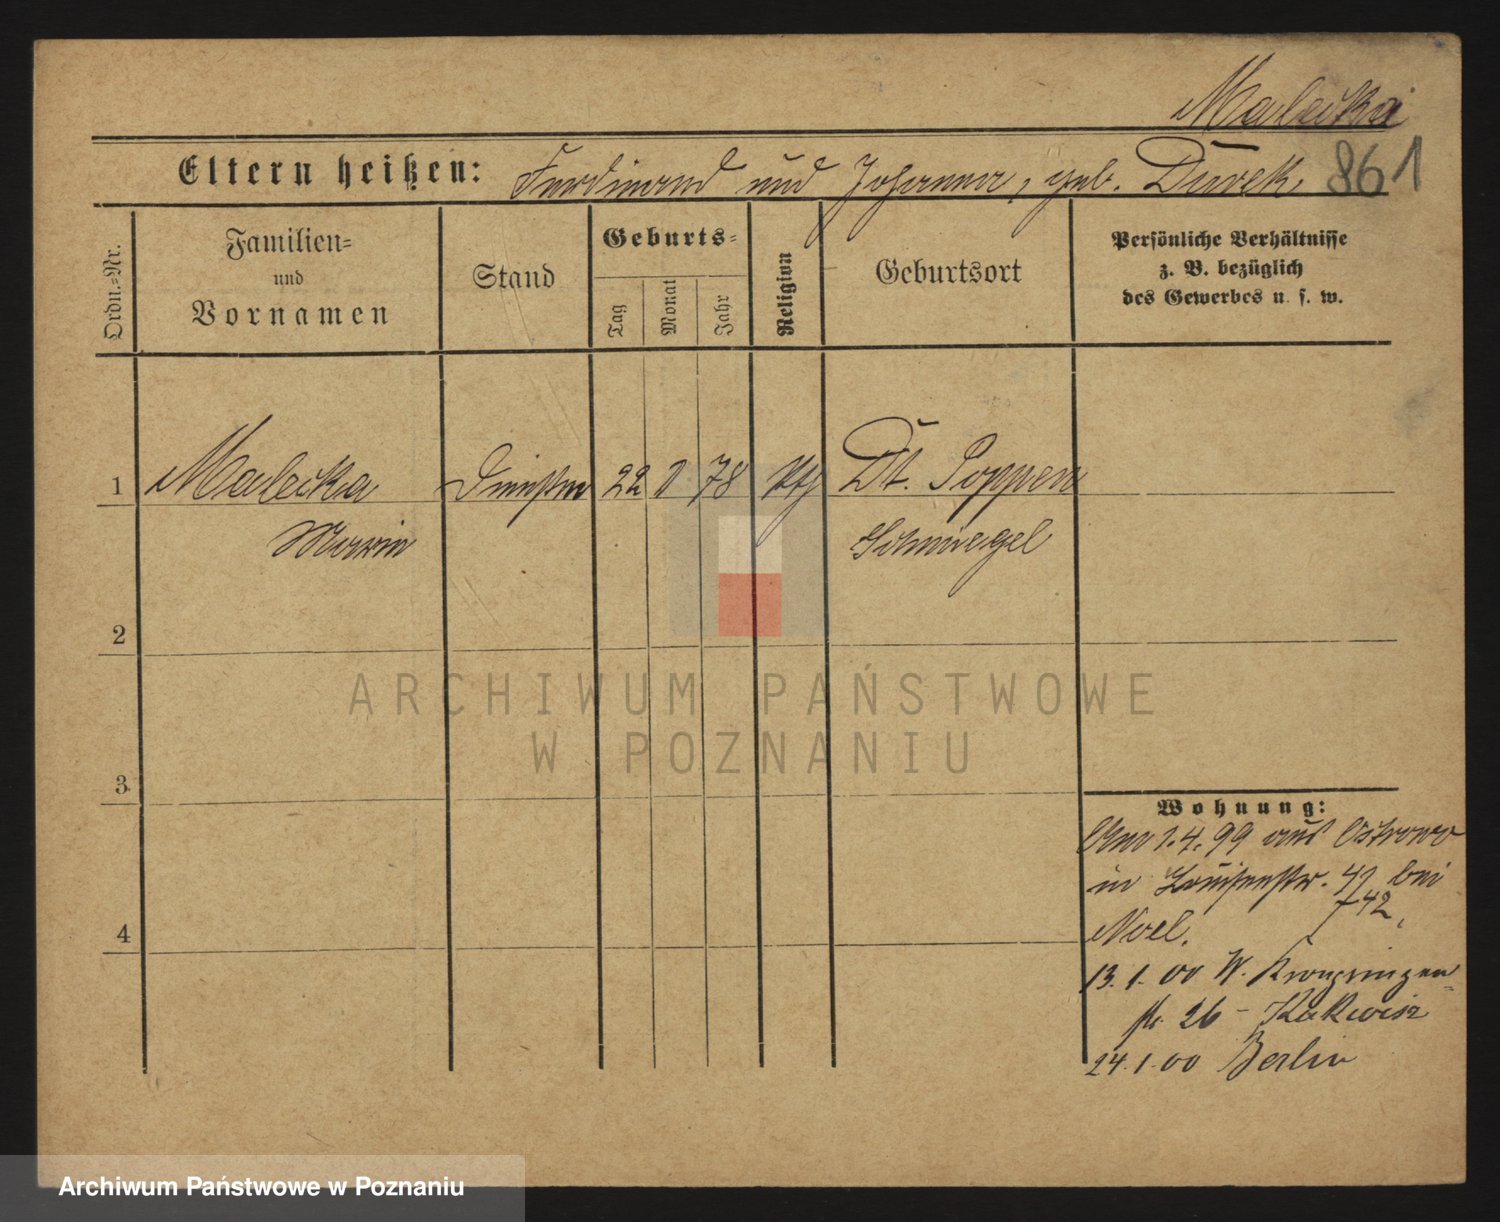 Malecka
Eltern heißen: Ferdinand und Johanna, geb. Durek. 861
Ordn.-Nr.
Familien-
und
Vornamen
Stand
Geburts-
Tag
Monat
Jahr
Religion
Geburtsort
Persönliche Verhältnisse
z. B. bezüglich
des Gewerbes u. s. w.
1 Malecka 22 78 kth Dt. Poppen
Schmiegel
2
3
4
ARCHIWUM PAŃSTWOWE
W POZNANIU
Wohnung:
Am 1.4.99 aus Ostrowo
in Louisenstr. 41 bei
Noel. 742
13.1.00 W. Kronprinzen-
str. 26 -
24.1.00 Berlin
Archiwum Państwowe w Poznaniu